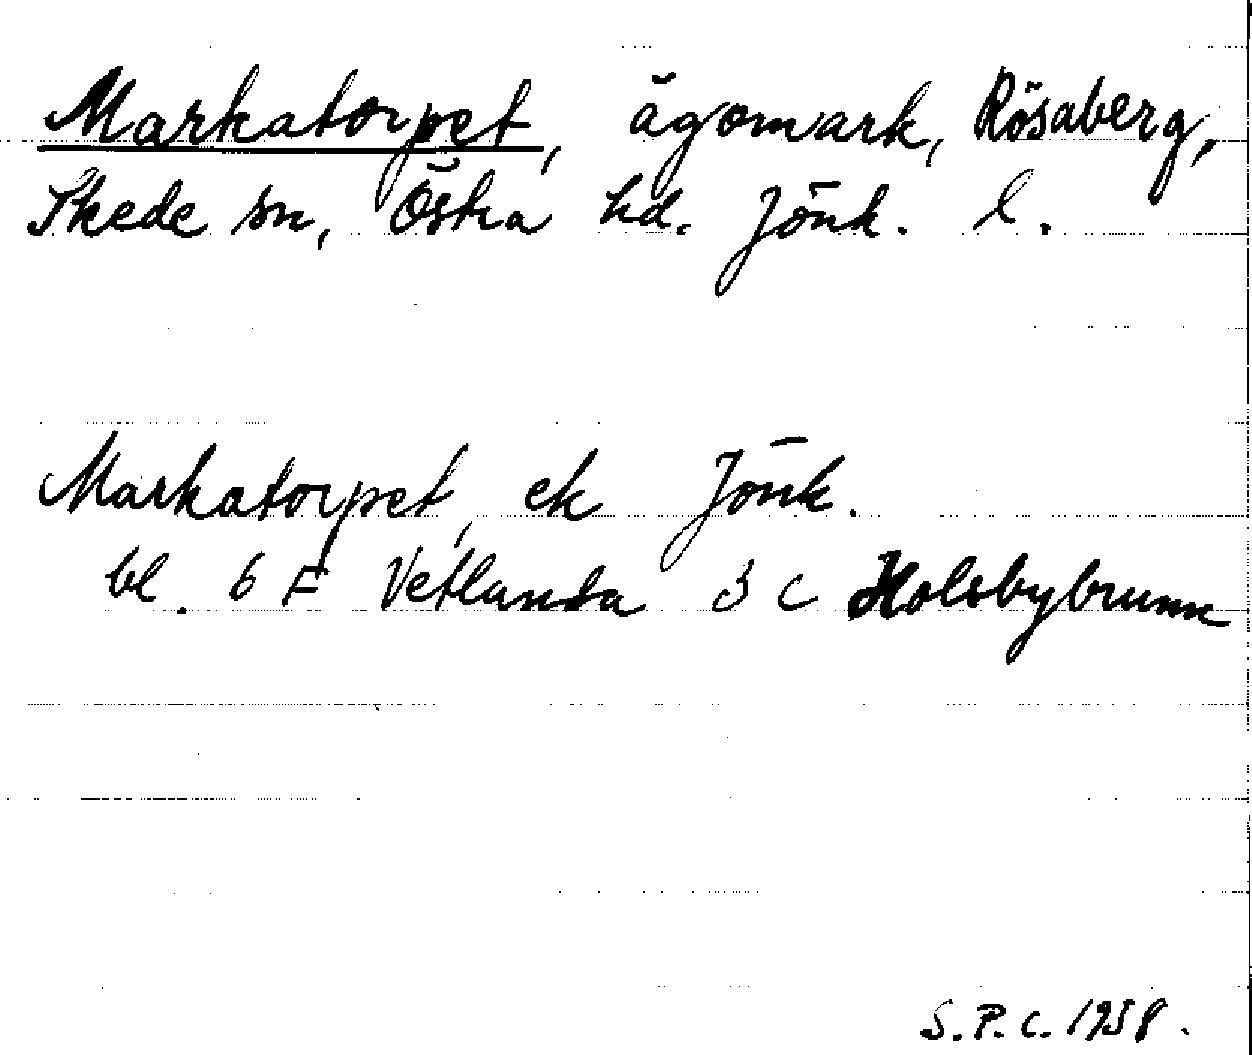 Markatorpet, ägomark, Rösaberg,
Skede sn, Östra hd. Jönk. l.
Markatorpet, ek Jönk.
bl. 6 F Vetlanda 3 C Holsbybrunn
S.P.C. 1958.